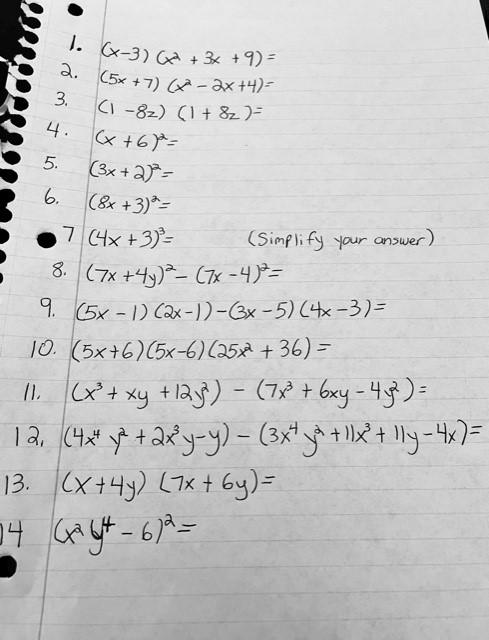 1. (x-3) (x² + 3x + 9) =
2. (5x + 7) (x² - 2x + 4) =
3. (1 - 8z) (1 + 8z) =
4. (x + 6)² =
5. (3x + 2)² =
6. (8x + 3)² =
7 (4x + 3)³ = (Simplify your answer)
8. (7x + 4y)² - (7x - 4)² =
9. (5x - 1) (2x - 1) - (3x - 5) (4x - 3) =
10. (5x + 6) (5x - 6) (25x² + 36) =
11. (x³ + xy + 12y²) - (7x³ + 6xy - 4y²) =
12. (4x⁴ y² + 2x³y - y) - (3x⁴ y² + 11x³ + 11y - 4x) =
13. (x + 4y) (7x + 6y) =
14 (x² y⁴ - 6)² =